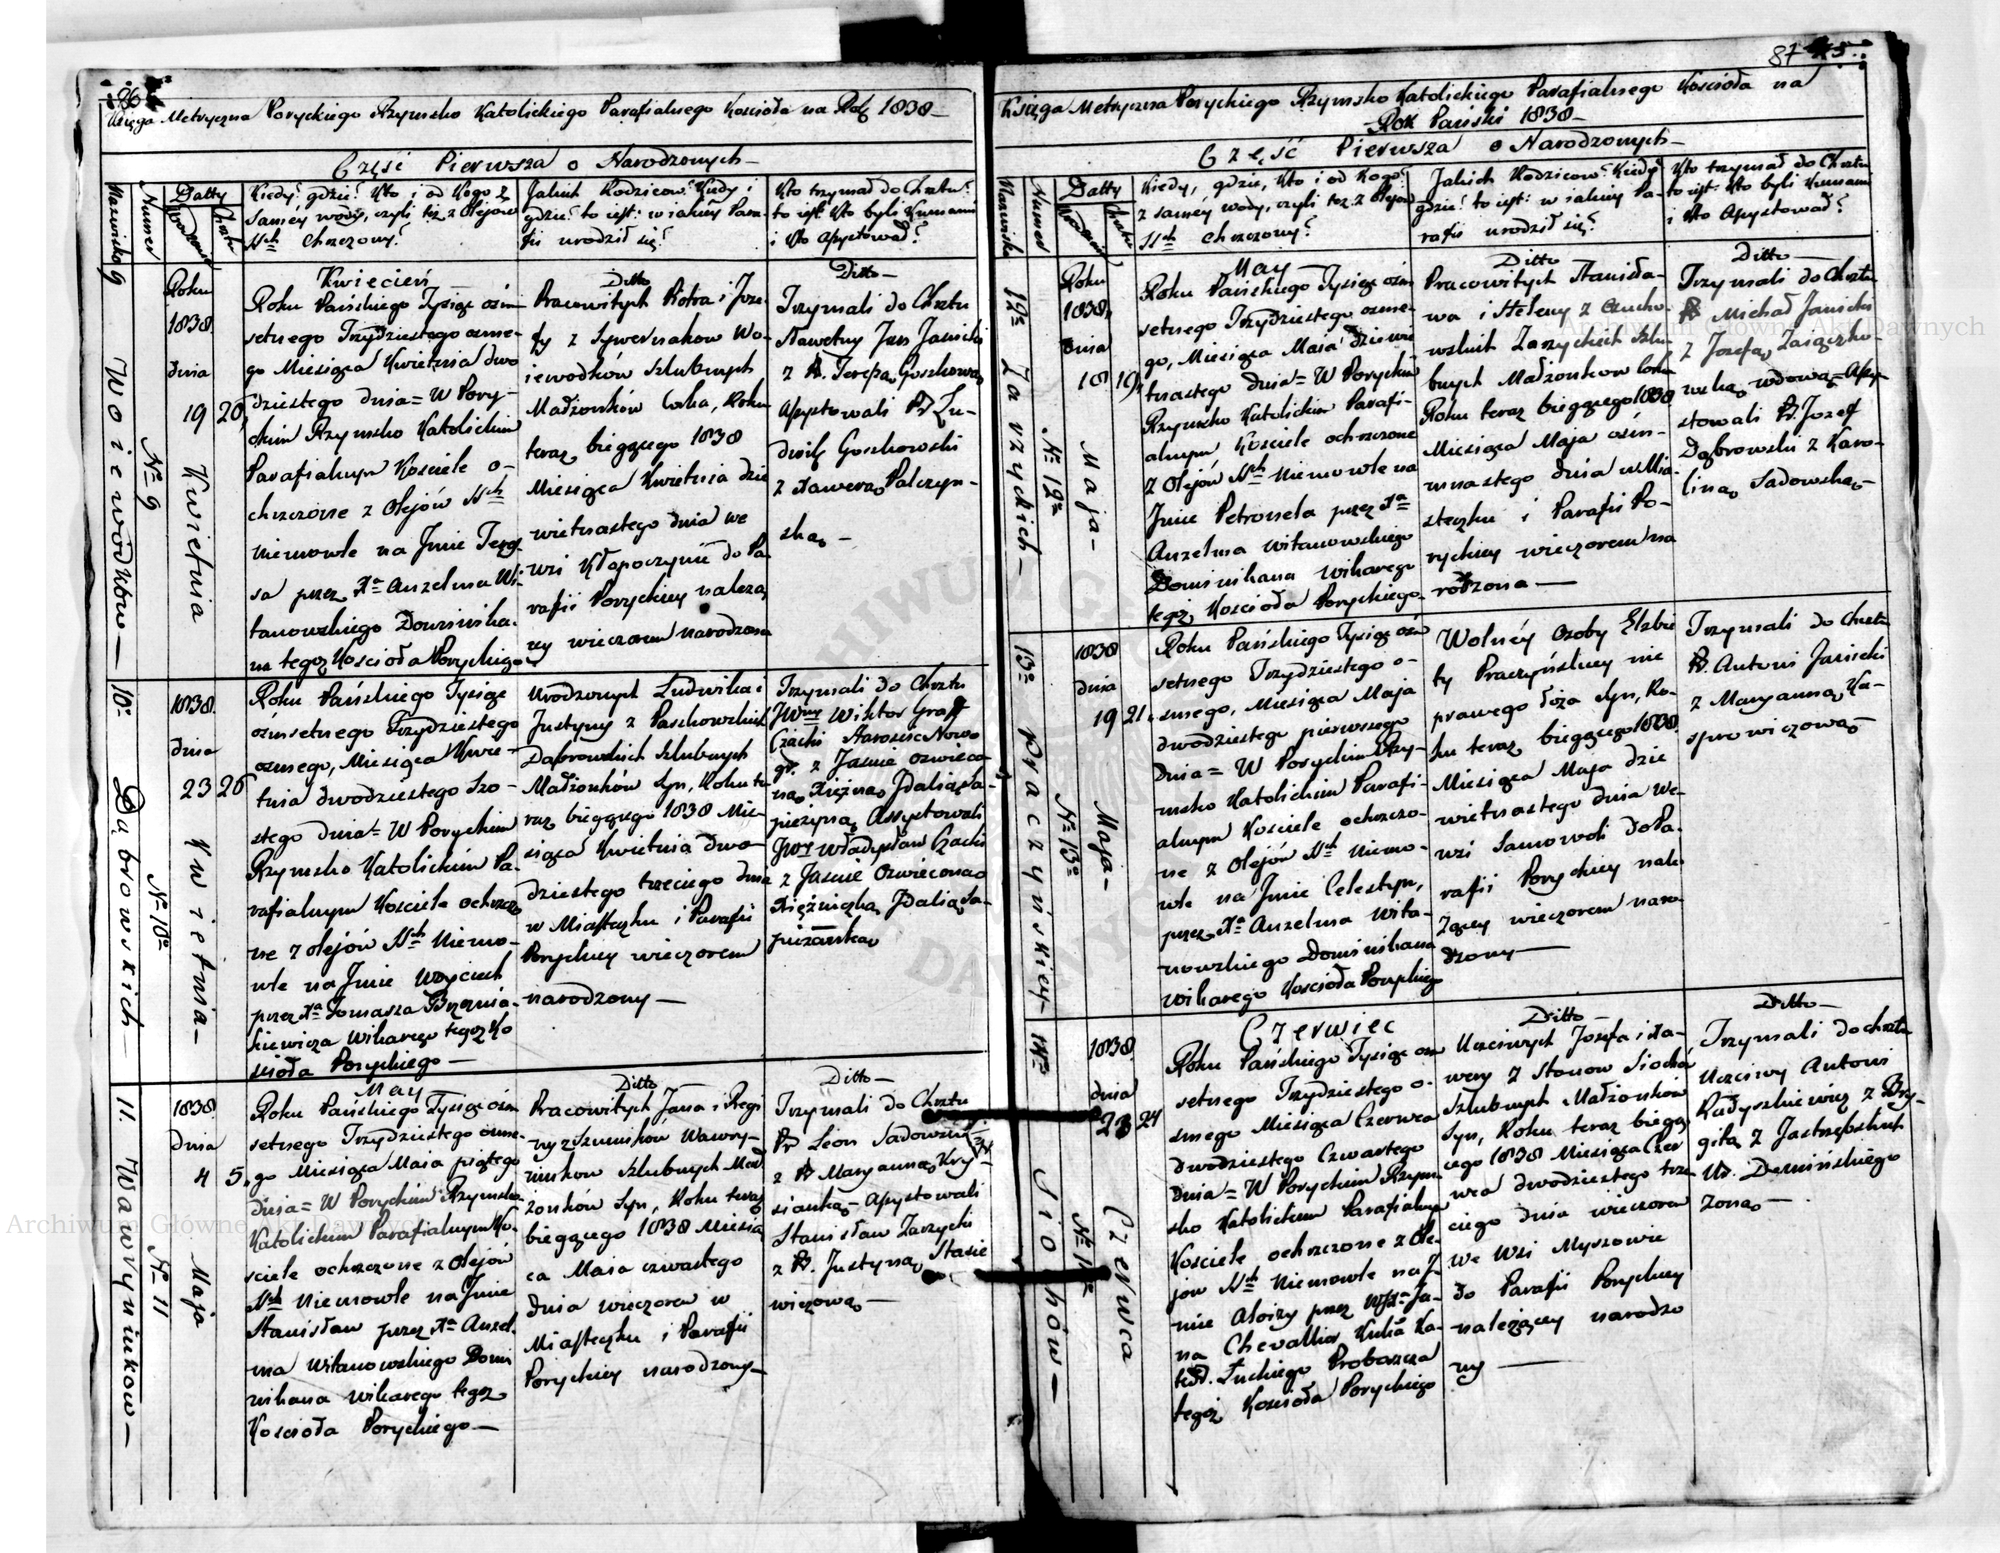 86
Księga Metryczna Poryckiego Rzymsko Katolickiego Parafialnego Kościoła na Rok 1838
Część Pierwsza o Narodzonych
Nazwisko
Numer
Datty
Urodzenia
Chrztu
Kiedy? gdzie? Kto i od Kogo z
samey wody, czyli też z Olejow
SSch Chrzczony?
Jakich Rodzicow? Kiedy i
gdzie? to iest: w iakiey Para-
fii urodził się?
Kto trzymał do Chrztu?
to iest: Kto byli Kumami
i Kto Assystował?
9
Woiewodków
N° 9
Roku
1838.
dnia
19 20,
Kwietnia
Kwiecień
Roku Pańskiego Tysiąc ośm
setnego Trzydziestego osme-
go Miesiąca Kwietnia dwu
dziestego dnia = W Pory-
ckim Rzymsko Katolickim
Parafialnym Kościele o-
chrzczone z Olejów SSch
niemowle na Jmie Tere-
sa przez Xa Anzelma Wi-
tanowskiego Dominika-
na tegoż Kościoła Poryckiego
Ditto
Pracowitych Piotra i Joze-
fy z Sywerniakow Wo-
iewodków Szlubnych
Małżonków Corka, Roku
teraz biegącego 1838
Miesiąca Kwietnia dzie
wietnastego dnia we
wsi Kłopoczynie do Pa
rafii Poryckiey należą
cey wieczorem narodzona
Ditto
Trzymali do Chrztu
Sławetny Jan Jasicki
z P. Teressą Goszkowską
Assystowali P. Lu-
dwik Goszkowski
z Xawerą Palczyn-
ską
10°
Dąbrowskich
N° 10°
1838.
dnia
23 26
Kwietnia
Roku Pańskiego Tysiąc
ośmsetnego Trzydziestego
osmego, Miesiąca Kwie-
tnia dwodziestego Szo-
stego dnia = W Poryckim
Rzymsko Katolickim Pa-
rafialnym Kościele ochrzczo
ne z olejów SSch Niemo-
wle na Jmie Woyciech
przez Xa Tomasza Brzeznia-
kiewicza Wikarego tegoż Ko
ścioła Poryckiego
Urodzonych Ludwika i
Justyny z Paszkowskich
Dąbrowskich Szlubnych
Małżonków Syn, Roku te
raz biegącego 1838 Mie-
siąca Kwietnia dwo-
dziestego trzeciego dnia
w Miasteczku i Parafii
Poryckiey wieczorem
narodzony
Trzymali do Chrztu
JWny Wiktor Graff
Czacki Starosic Nowo
gr. z Jasnie Oswieco
ną Xiężną Jdalią Sa-
pieżyną Assystowali
JWny Władysław Czacki
z Jasnie Oswieconą
Xiężniczką Jdalią Sa-
pieżanką
11.
Wawryniuków
N° 11
1838.
dnia
4 5.
Maja
May
Roku Pańskiego Tysiąc ośm
setnego Trzydziestego osme-
go Miesiąca Maia piątego
dnia = W Poryckim Rzymsko
Katolickim Parafialnym Ko-
sciele ochrzczone z Olejów
SSch Niemowle na Jmie
Stanisław przez Xa Anzel-
ma Witanowskiego Domi
nikana wikarego tegoż
Kościoła Poryckiego
Ditto
Pracowitych Jana i Regi
ny z Szumików Wawry-
niukow Szlubnych Mał
żonków Syn, Roku teraz
biegącego 1838 Miesią
ca Maia czwartego
dnia wieczorem w
Miasteczku i Parafii
Poryckiey narodzony
Ditto
Trzymali do Chrztu
P. Leon Sadowski
z P. Maryanną Kry-
sianką Assystowali
Stanisław Zarzycki
z P. Justyną Stasie
wiczową
87
Księga Metryczna Poryckiego Rzymsko Katolickiego Parafialnego Kościoła na
Rok Pański 1838
Część Pierwsza o Narodzonych
Nazwisko
Numer
Datty
Urodzenia
Chrztu
Kiedy, gdzie, Kto i od Kogo?
z samey wody, czyli też z Olejow
SSch chrzczony?
Jakich Rodzicow? Kiedy
gdzie? to iest: w iakiey Pa-
rafii urodził się?
Kto trzymał do Chrztu
to iest: Kto byli Kumami
i Kto Assystował?
12°
Zarzyckich
N° 12°
Roku
1838,
dnia
18 19,
Maja
May
Roku Pańskiego Tysiąc ośm
setnego Trzydziestego osme-
go, Miesiąca Maia dziewie
tnastego dnia = W Poryckim
Rzymsko Katolickim Parafi-
alnym Kościele ochrzczone
z Olejów SSch Niemowle na
Jmie Petronela przez Xa
Anzelma Witanowskiego
Dominikana wikarego
tegoż Kościoła Poryckiego
Ditto
Pracowitych Stanisła-
wa i Heleny z
Zarzyckich Szlu-
bnych Małżonkow Corka
Roku teraz biegącego 1838
Miesiąca Maja osm-
nastego dnia w Mia-
steczku i Parafii Po-
ryckiey wieczorem na
rodzona
Ditto
Trzymali do Chrztu
P. Michał Janicki
z Jozefą Zaiączko-
wską wdową = Assy-
stowali P. Jozef
Dąbrowski z Karo-
liną Sadowską
13°
Praczyńskiey
N° 13°
1838
dnia
19 21.
Maja
Roku Pańskiego Tysiąc ośm
setnego Trzydziestego o-
smego, Miesiąca Maja
dwodziestego pierwszego
dnia = W Poryckim Rzy-
msko Katolickim Parafi-
alnym Kościele ochrzczo-
ne z Olejów SSch Niemo-
wle na Jmie Celestyn,
przez Xa Anzelma Wita-
nowskiego Dominikana
wikarego Kościoła Poryckiego
Wolney Osoby Elzbie
ty Praczyńskiey nie
prawego łoża Syn, Ro-
ku teraz biegącego 1838.
Miesiąca Maja dzie
wietnastego dnia we
wsi Samowoli do Pa-
rafii Poryckiey nale
żącey wieczorem naro
dzony
Trzymali do Chrztu
P. Antoni Jasicki
z Maryanną Ka-
sprowiczową
14°
Siochów
N° 14°
1838
dnia
23 24
Czerwca
Czerwiec
Roku Pańskiego Tysiąc ośm
setnego Trzydziestego o-
smego Miesiąca Czerwca
dwodziestego Czwartego
dnia = W Poryckim Rzym-
sko Katolickim Parafialnym
Kościele ochrzczone z Ole-
jow SSch Niemowle na J-
mie Aloizy przez WJXa Ja-
na Chevallier Kan. Ka-
ted. Łuckiego Proboszcza
tegoż Kościoła Poryckiego
Ditto
Uczciwych Jozefa i Xa-
wery z Stonow Siochów
Szlubnych Małżonków
Syn, Roku teraz biegą
cego 1838 Miesiąca Czer
wca dwodziestego trze
ciego dnia wieczorem
we Wsi Myszowie
do Parafii Poryckiey
należącey narodzo
ny
Ditto
Trzymali do chrztu
Uczciwy Antoni
Kadyszkiewicz z Bry-
gitą z Jastrzębskich
Ur. Demińskiego
żoną
Archiwum Główne Akt Dawnych
Archiwum Główne Akt Dawnych